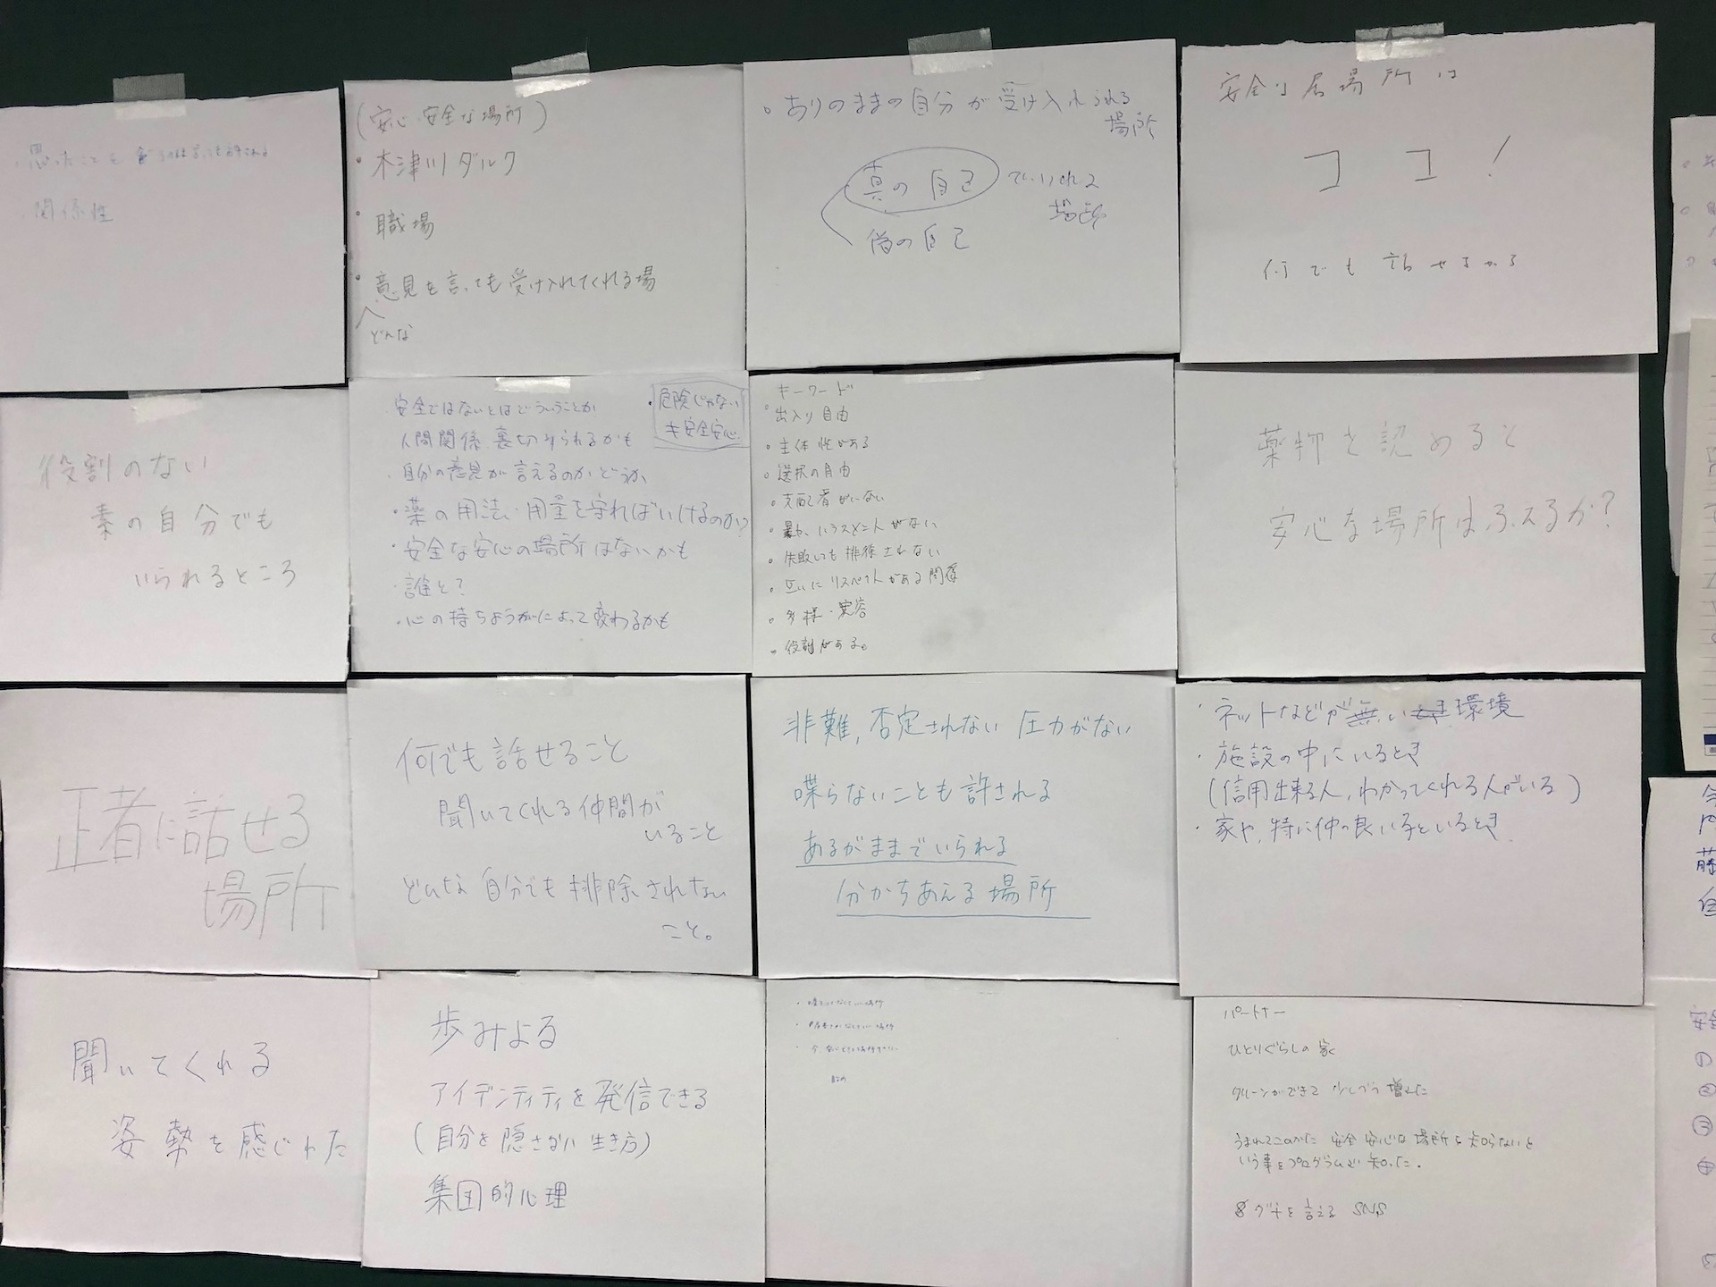 ・思ったことを
・関係性
(安心・安全な場所)
・木津川ダルク
・職場
・意見を言っても受け入れてくれる場
どんな
。ありのままの自分が受け入れられる
場所
真の自己 でいられる
場所
偽の自己
安全な居場所は
ココ!
何でも話せるから
役割のない
素の自分でも
いられるところ
安全ではないとはどういうことか
人間関係 裏切られるかも
・自分の意見が言えるのかどうか
・薬の用法・用量を守ればいけるのか?
・安全な安心の場所はないかも
・誰と?
・心の持ちようがによって変わるかも
・危険じゃない
キ安全安心
キーワード
。出入り自由
。主体性がある
。選択の自由
。支配者がいない
。ハラスメントがない
。失敗しても排除されない
。互いにリスペクトがある関係
。多様・寛容
。役割がある。
薬物を認めると
安心な場所はふえるか?
正者に話せる
場所
何でも話せること
聞いてくれる仲間が
いること
どんな自分でも排除されない
こと。
非難,否定されない 圧力がない
喋らないことも許される
あるがままでいられる
分かちあえる場所
・ネットなどが無い 環境
・施設の中にいるとき
(信用出来る人,わかってくれる人がいる)
・家や,特に仲の良い子といるとき
聞いてくれる
姿勢を感じれた
歩みよる
アイデンティティを発信できる
(自分を隠さない生き方)
集団的心理
パートナー
ひとりぐらしの家
グループができて 少しづつ増えた
うまれてこのかた 安全 安心な場所を知らないと
いう事をプログラムで知った.
グチを言える SNS
安
①
②
③
④